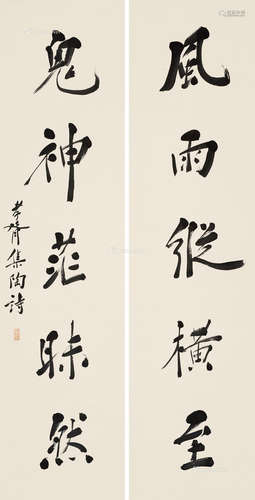 風雨縱橫至
鬼神茫昧然
孝胥集陶詩